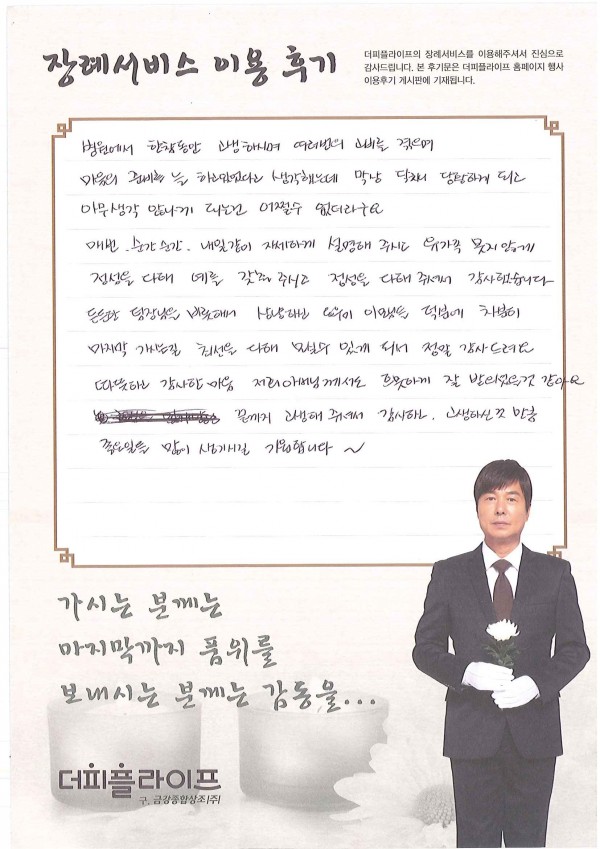 장례서비스 이용 후기
더피플라이프의 장례서비스를 이용해주셔서 진심으로
감사드립니다. 본 후기문은 더피플라이프 홈페이지 행사
이용후기 게시판에 기재됩니다.
병원에서 한참동안 고생하시며 여러번의 고비를 겪으며
마음의 준비를 늘 하고있었다고 생각했는데 막상 닥쳐서 당황하게 되고
아무생각 안나게 되는건 어쩔수 없더라구요
매번 순간순간 내일같이 자세하게 설명해 주시고 유가족 못지 않게
정성을 다해 예를 갖춰 주시고 정성을 다해 주셔서 감사했습니다
든든한 팀장님을 비롯해서 상냥하신 이모님들 덕분에 차분히
마지막 가시는길 최선을 다해 모실수 있게 되서 정말 감사드려요
따뜻하고 감사한 마음 저희아버님께서도 흐뭇하게 잘 받으셨을것 같아요
끝까지 고생해 주셔서 감사하고, 고생하신 것 만큼
좋은일들 많이 생기시길 기원합니다 ~
가시는 분께는
마지막까지 품위를
보내시는 분께는 감동을...
더피플라이프
구. 금강종합상조(주)